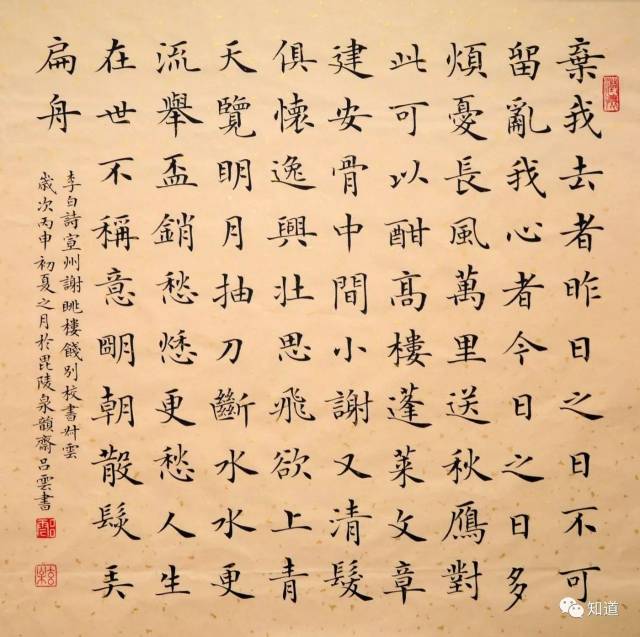 棄我去者昨日之日不可
留亂我心者今日之日多
煩憂長風萬里送秋鴈對
此可以酣高樓蓬萊文章
建安骨中間小謝又清髮
俱懷逸興壯思飛欲上青
天覽明月抽刀斷水水更
流舉盃銷愁愁更愁人生
在世不稱意明朝散髮弄
扁舟
李白詩宣州謝眺樓餞別校書叔雲
歲次丙申初夏之月於毘陵泉韻齋呂雲書
知道